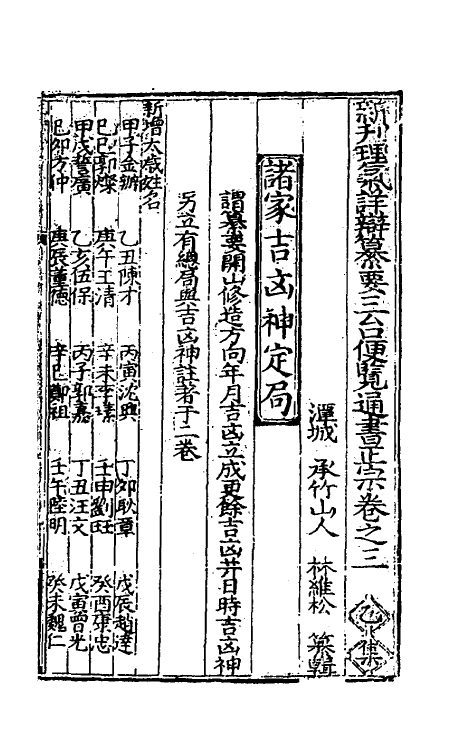 新刊理氣詳辯纂要三台便覽通書正宗卷之三
乙集
潭城 承竹山人 林維松 纂輯
諸家吉凶神定局
謂纂要開山修造方向年月吉凶立成更餘吉凶并日時吉凶神
另立有總局與吉凶神註著于二卷
新增太歲姓名
甲子金辦 乙丑陳才 丙寅沈興 丁卯耿章 戊辰趙達
己巳郭燦 庚午王清 辛未李素 壬申劉旺 癸酉康忠
甲戌誓廣 乙亥伍保 丙子郭嘉 丁丑汪文 戊寅曾光
己卯方仲 庚辰董德 辛巳鄭祖 壬午陸明 癸未魏仁